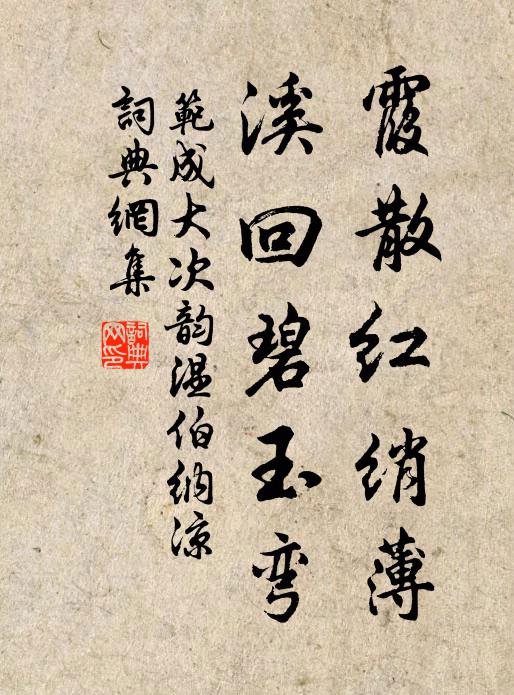 霞散红绡薄
溪回碧玉弯
範成大次韵温伯纳凉
詞典網集